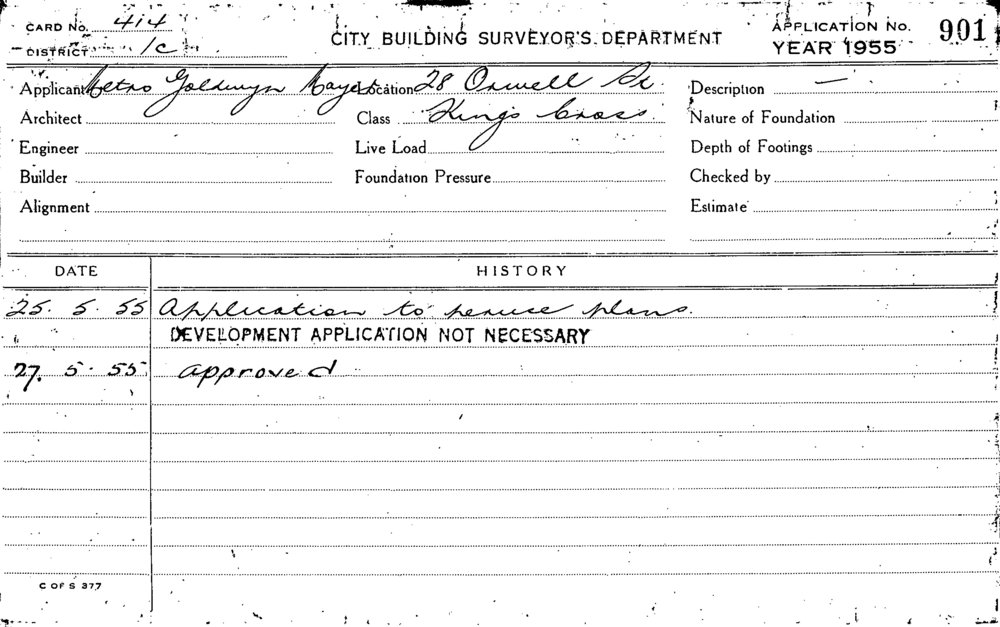 CARD No. 414
DISTRICT 1c
CITY BUILDING SURVEYOR'S DEPARTMENT
APPLICATION No. 901
YEAR 1955
Applicant Metro Goldwyn Mayer Location 28 Orwell St. Description —
Architect Class Kings Cross. Nature of Foundation
Engineer Live Load Depth of Footings
Builder Foundation Pressure Checked by
Alignment Estimate
DATE HISTORY
25. 5. 55 Application to peruse plans.
DEVELOPMENT APPLICATION NOT NECESSARY
27. 5. 55 approved
C OF S 377